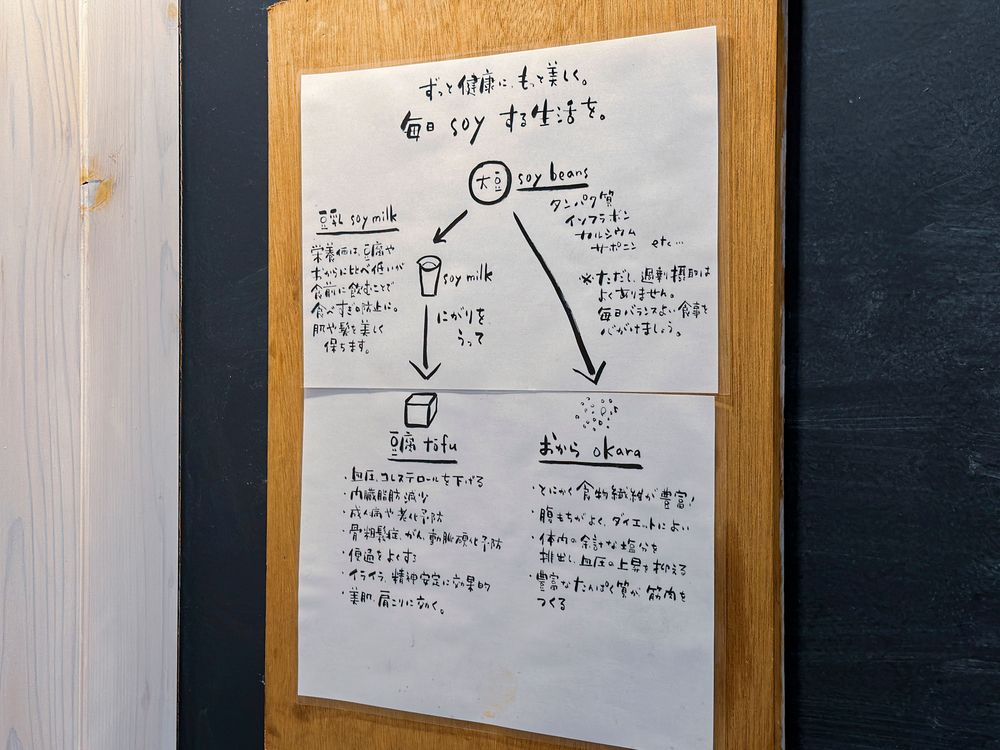 ずっと健康に、もっと美しく。
毎日 soy する生活を。
大豆 soy beans
タンパク質
イソフラボン
カルシウム
サポニン etc...
※ただし、過剰摂取は
よくありません。
毎日バランスよい食事を
心がけましょう。
豆乳 soy milk
栄養価は、豆腐や
おからに比べ低いが
食前に飲むことで
食べすぎの防止に。
肌や髪を美しく
保ちます。
soy milk
にがりを
うって
豆腐 tōfu
・血圧、コレステロールを下げる
・内臓脂肪減少
・成人病や老化予防
・骨粗鬆症、がん、動脈硬化予防
・便通をよくする
・イライラ、精神安定に効果的
・美肌、肩こりに効く。
おから okara
・とにかく食物繊維が豊富!
・腹もちがよく、ダイエットによい
・体内の余計な塩分を
排出し、血圧の上昇を抑える
・豊富なたんぱく質が筋肉を
つくる